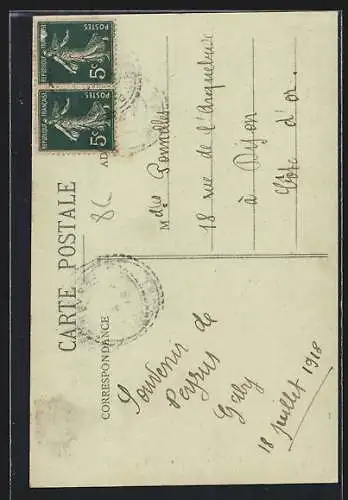 CARTE POSTALE
CORRESPONDANCE
AD
REPUBLIQUE FRANÇAISE
POSTES
5c
REPUBLIQUE FRANÇAISE
POSTES
5c
8c
M
18 rue de l'Arquebuse
à Dijon
Côte d'or.
Souvenir de
Peyrus
Gaby
18 juillet 1918